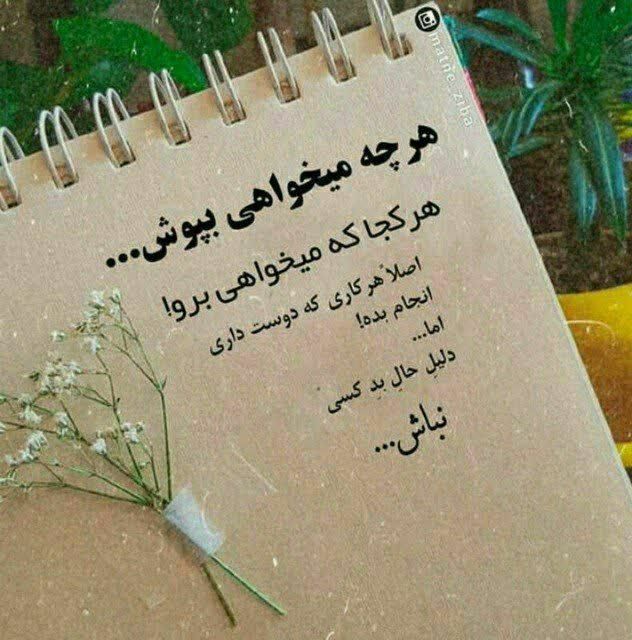 matne_ziba
هر چه میخواهی بپوش...
هر کجا که میخواهی برو!
اصلاً هر کاری که دوست داری
انجام بده!
اما...
دلیلِ حالِ بدِ کسی
نباش...